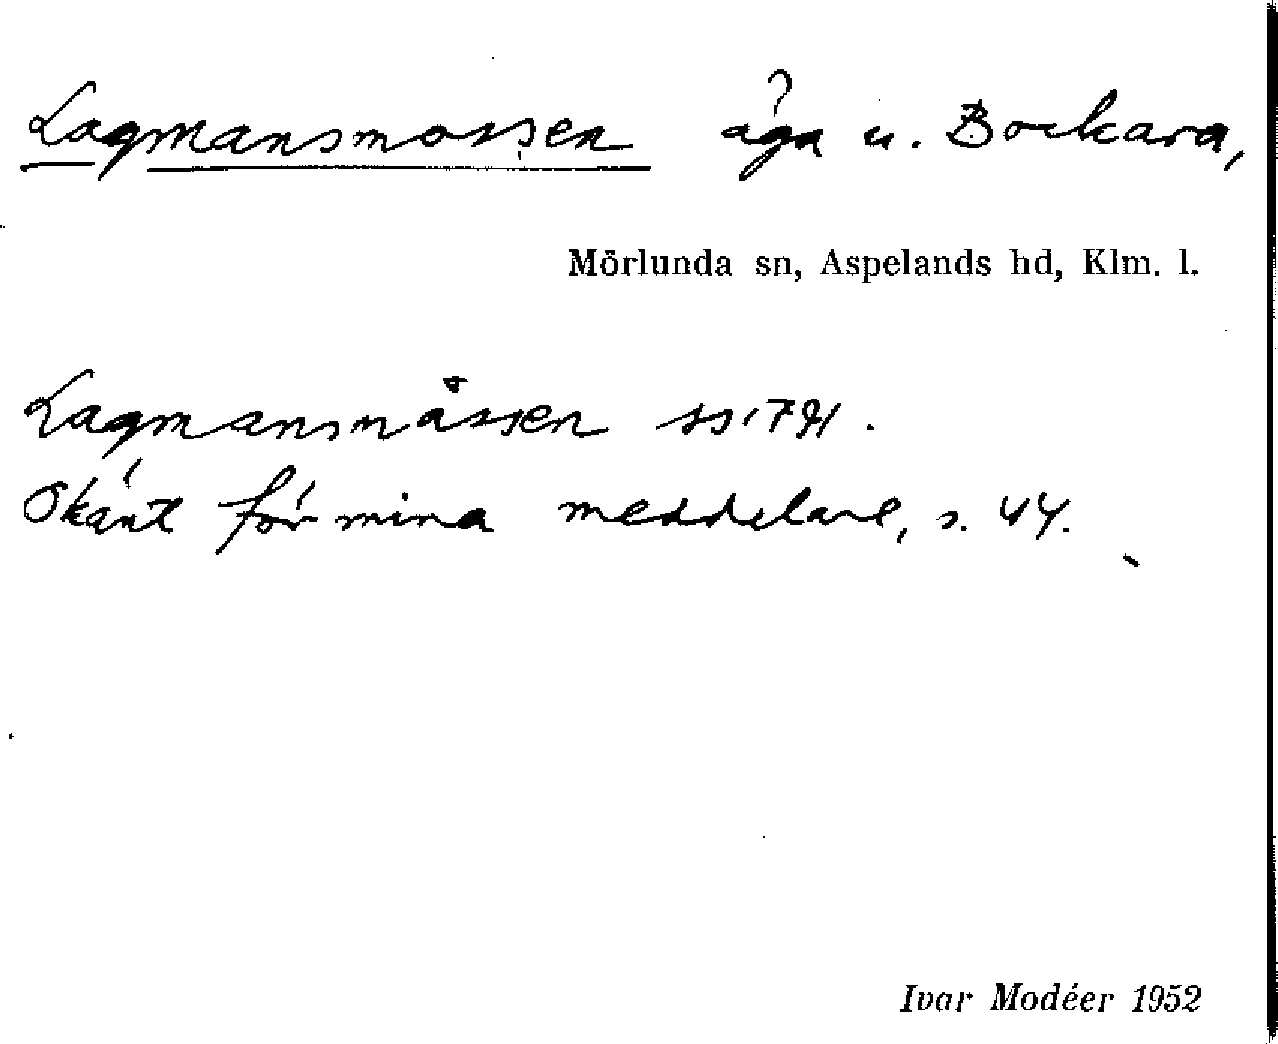 Lagmansmossen äga u. Bockara,
Mörlunda sn, Aspelands hd, Klm. l.
Lagmansmåssen ss 1791.
Okänt för mina meddelare, s. 44.
Ivar Modéer 1952